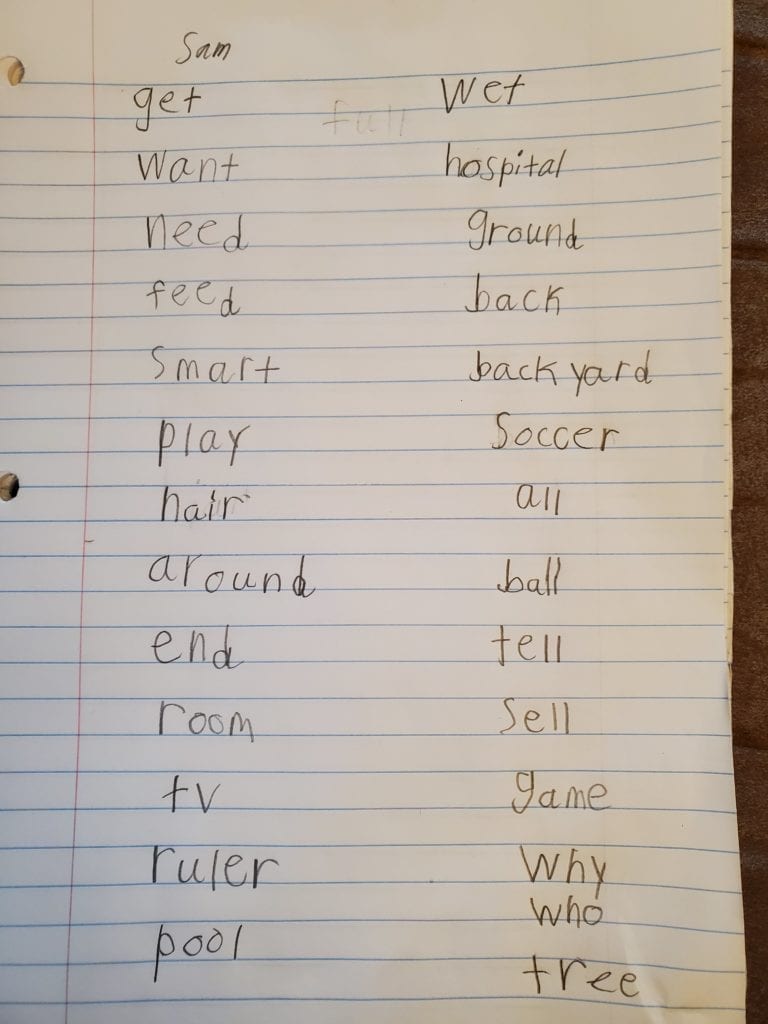 Sam
get
want
need
feed
smart
play
hair
around
end
room
tv
ruler
pool
full
wet
hospital
ground
back
back yard
Soccer
all
ball
tell
Sell
game
Why
who
tree